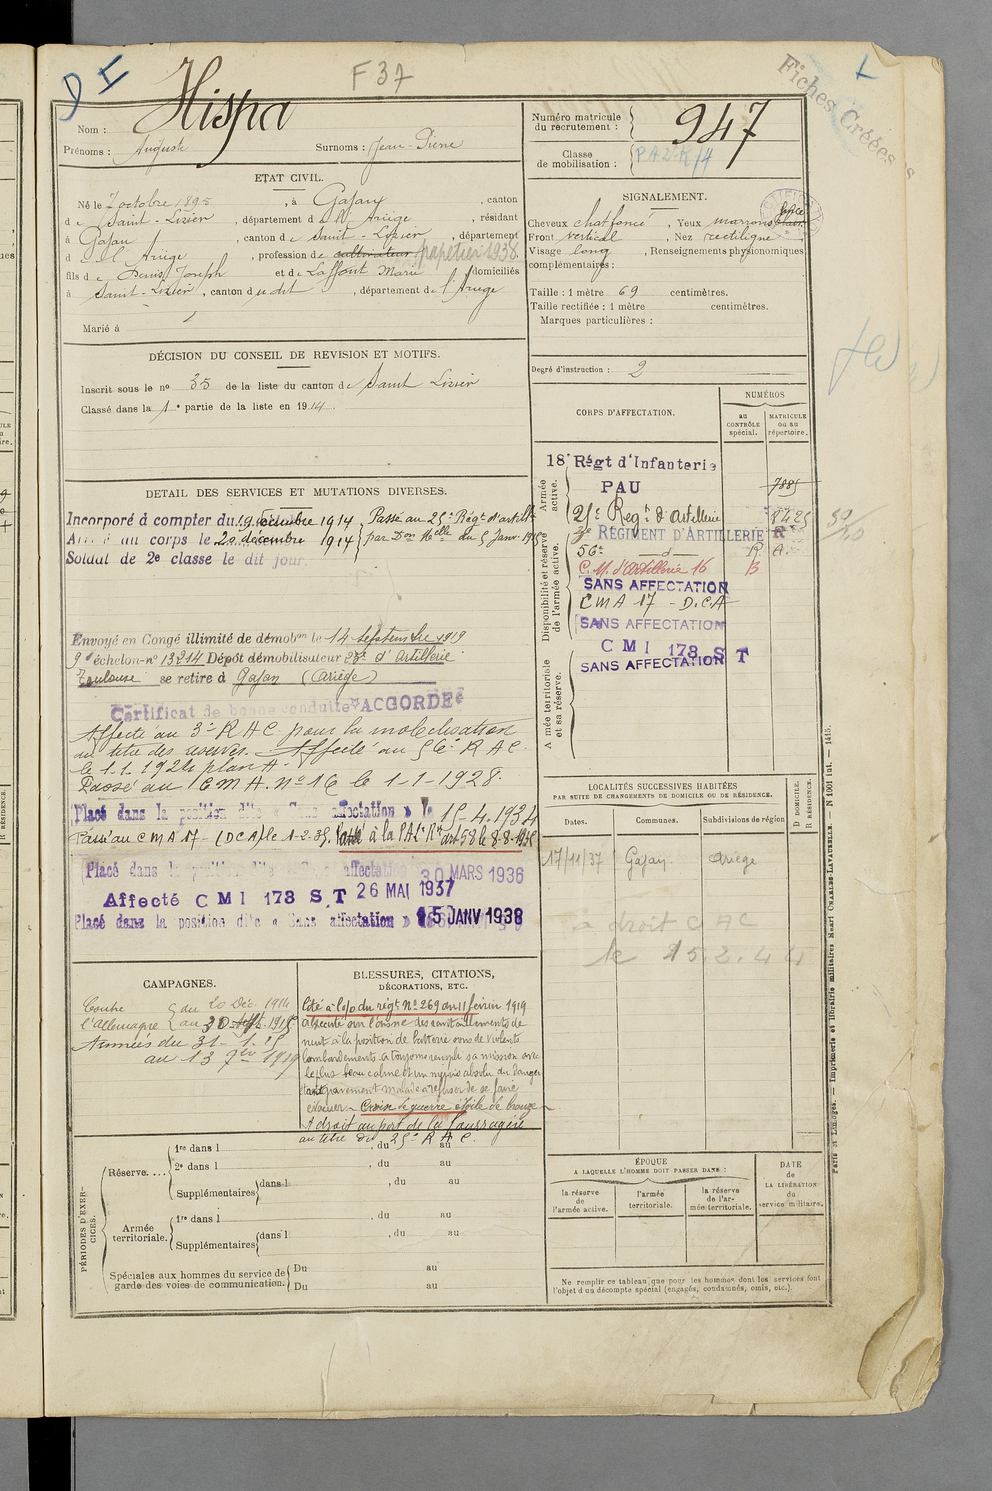 F 37
Fiches Créées
Nom : Hispa
Prénoms : Auguste Surnoms : Jean-Pierre
Numéro matricule
du recrutement : 947
Classe
de mobilisation :
ETAT CIVIL.
Né le 7 octobre 1895, à Gajan, canton
de Saint-Lizier, département de l'Ariège, résidant
à Gajan, canton de Saint-Lizier, département
d l'Ariège, profession de cultivateur papetier 1938.
fils de Denis Joseph et de Laffont Marie domiciliés
à Saint-Lizier, canton du dit, département de l'Ariège
Marié à
SIGNALEMENT.
Cheveux chat foncé, Yeux marrons
Front vertical, Nez rectiligne
Visage long, Renseignements physionomiques
complémentaires :
Taille : 1 mètre 69 centimètres.
Taille rectifiée : 1 mètre centimètres.
Marques particulières :
Degré d'instruction : 2
DÉCISION DU CONSEIL DE REVISION ET MOTIFS.
Inscrit sous le no 35 de la liste du canton de Saint Lizier
Classé dans la 1e partie de la liste en 1914.
DETAIL DES SERVICES ET MUTATIONS DIVERSES.
Incorporé à compter du 19 décembre 1914 Passé au 25e Régt d'artill
Arrivé au corps le 20 décembre 1914 par Don Melle du 5 Janv. 1915
Soldat de 2e classe le dit jour.
Envoyé en Congé illimité de démobon le 14 septembre 1919
9e échelon-no 13214 Dépôt démobilisateur 23e d'Artillerie
Toulouse se retire à Gajan (Ariège)
Certificat de bonne conduite "ACCORDÉ"
Affecté au 3e R A C. pour la mobilisation
au titre des réserves. Affecté au 56e R A C.
le 1.1.1924 plan A.
Passé au C M A. no 16 le 1-1-1928.
Placé dans la position dite « Sans affectation » le 15-4.1934
Passé au C M A 17 - (DCA) le 1-2-35. Passé à la PAL Rt art 58 le 8-8-1935
Placé dans la position dite Sans affectation 30 MARS 1936
Affecté C M I 173 S.T 26 MAI 1937
Placé dans la position dite « Sans affectation » 15 JANV 1938
CORPS D'AFFECTATION.
NUMÉROS
au
CONTRÔLE
spécial.
MATRICULE
ou au
répertoire.
Armée
active.
18e Régt d'Infanterie
PAU
7885
25e Regt d'Artillerie
3e RÉGIMENT D'ARTILLERIE R
56e d R A
C. M. d'Artillerie 16 B
SANS AFFECTATION
C M A 17 - D.C.A
SANS AFFECTATION
C M I 173 S T
SANS AFFECTATION
Disponibilité et réserve
de l'armée active.
Armée territoriale
et sa réserve.
LOCALITÉS SUCCESSIVES HABITÉES
PAR SUITE DE CHANGEMENTS DE DOMICILE OU DE RÉSIDENCE.
Dates. Communes. Subdivisions de région
D DOMICILE.
R RÉSIDENCE.
17/11/37 Gajan Ariège
a droit C A C
le 15.2.44
CAMPAGNES.
Contre du 20 Déc. 1914
l'Allemagne au 30
Armées du 31-1-15
au 13 7bre 1919
BLESSURES, CITATIONS,
DÉCORATIONS, ETC.
Cité à l'o/o du régt No 269 du 11 février 1919
a exécuté sur l'Aisne des ravitaillements de
nuit à la position de batterie sous de violents
bombardements. A toujours rempli sa mission avec
le plus beau calme et un mépris absolu du danger
gravement malade a refusé de se faire
évacuer. Croix de guerre étoile de bronze
A droit au port de la Fourragère
au titre du 25e R A C.
PÉRIODES D'EXERCICES.
Réserve....
1re dans l , du au
2e dans l , du au
Supplémentaires dans l , du au
Armée
territoriale.
1re dans l , du au
Supplémentaires dans l , du au
Spéciales aux hommes du service de
garde des voies de communication.
Du au
Du au
ÉPOQUE
A LAQUELLE L'HOMME DOIT PASSER DANS :
la réserve
de
l'armée active.
l'armée
territoriale.
la réserve
de l'ar-
mée territoriale.
DATE
de
LA LIBÉRATION
du
service militaire.
Ne remplir ce tableau que pour les hommes dont les services font
l'objet d'un décompte spécial (engagés, condamnés, omis, etc.).
Paris et Limoges. — Imprimerie et librairie militaires Henri CHARLES-LAVAUZELLE. — N 1001 int. — 1415.